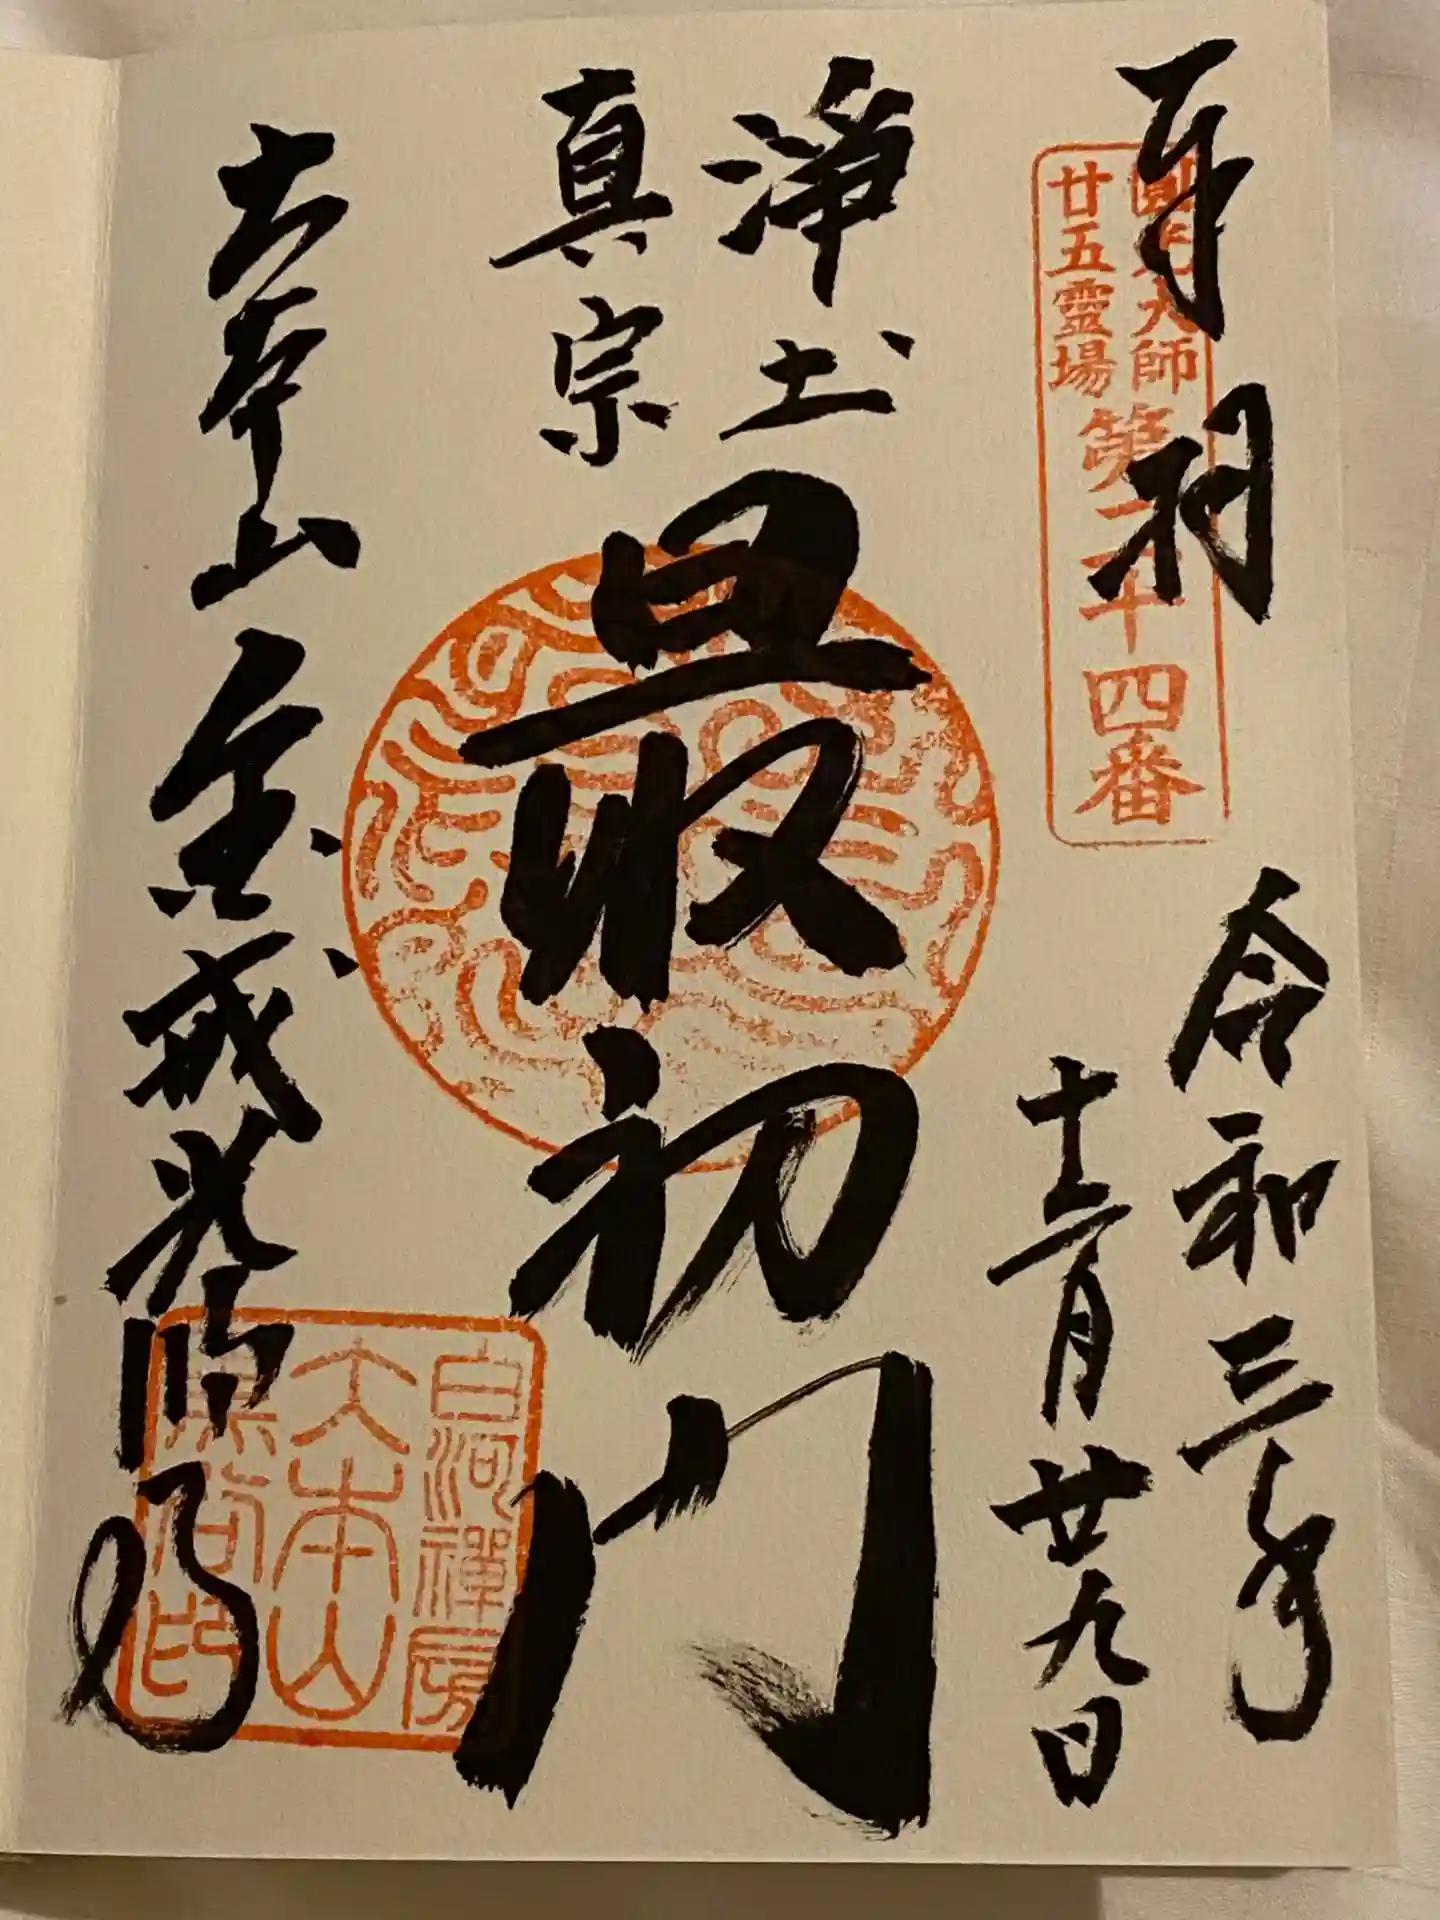 奉拝
圓光大師
廿五靈場
第二十四番
令和三年
十二月廿九日
淨土
真宗
最初門
大本山 金戒光明寺
白河禪房
大本山
黒谷印